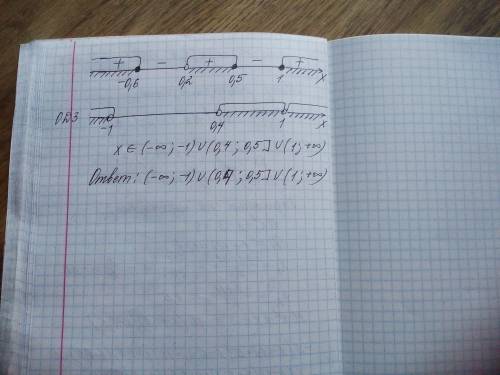 + − + − +
-0,6 0,2 0,5 1 x
ОДЗ -1 0,4 1 x
x ∈ (-∞; -1) ∪ (0,4; 0,5] ∪ (1; +∞)
Ответ: (-∞; -1) ∪ (0,4; 0,5] ∪ (1; +∞)